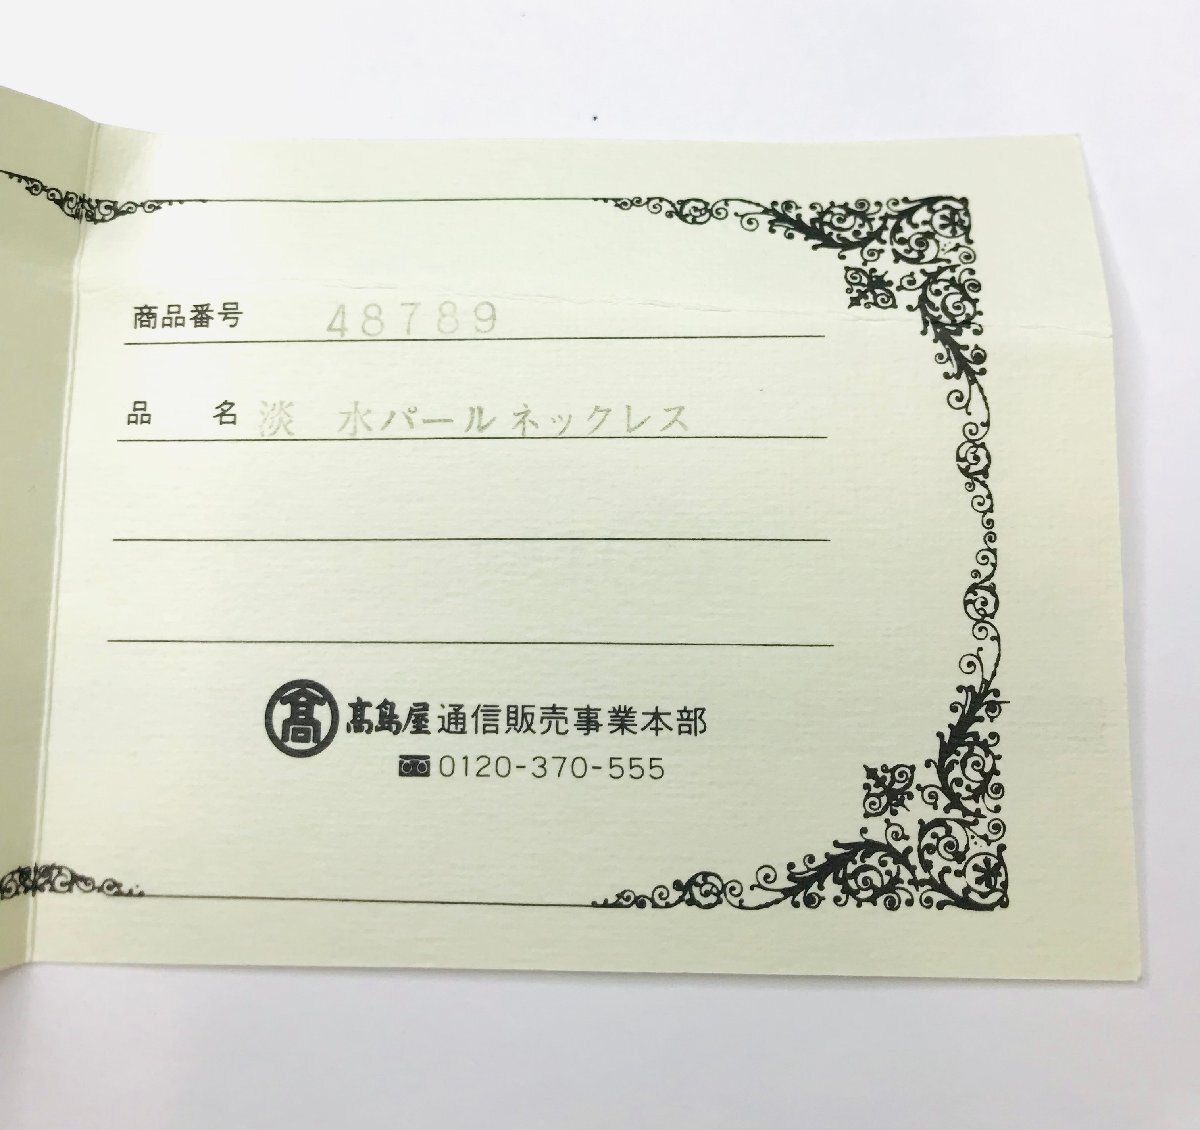 商品番号 48789
品 名 淡 水パールネックレス
髙 髙島屋通信販売事業本部
0120-370-555